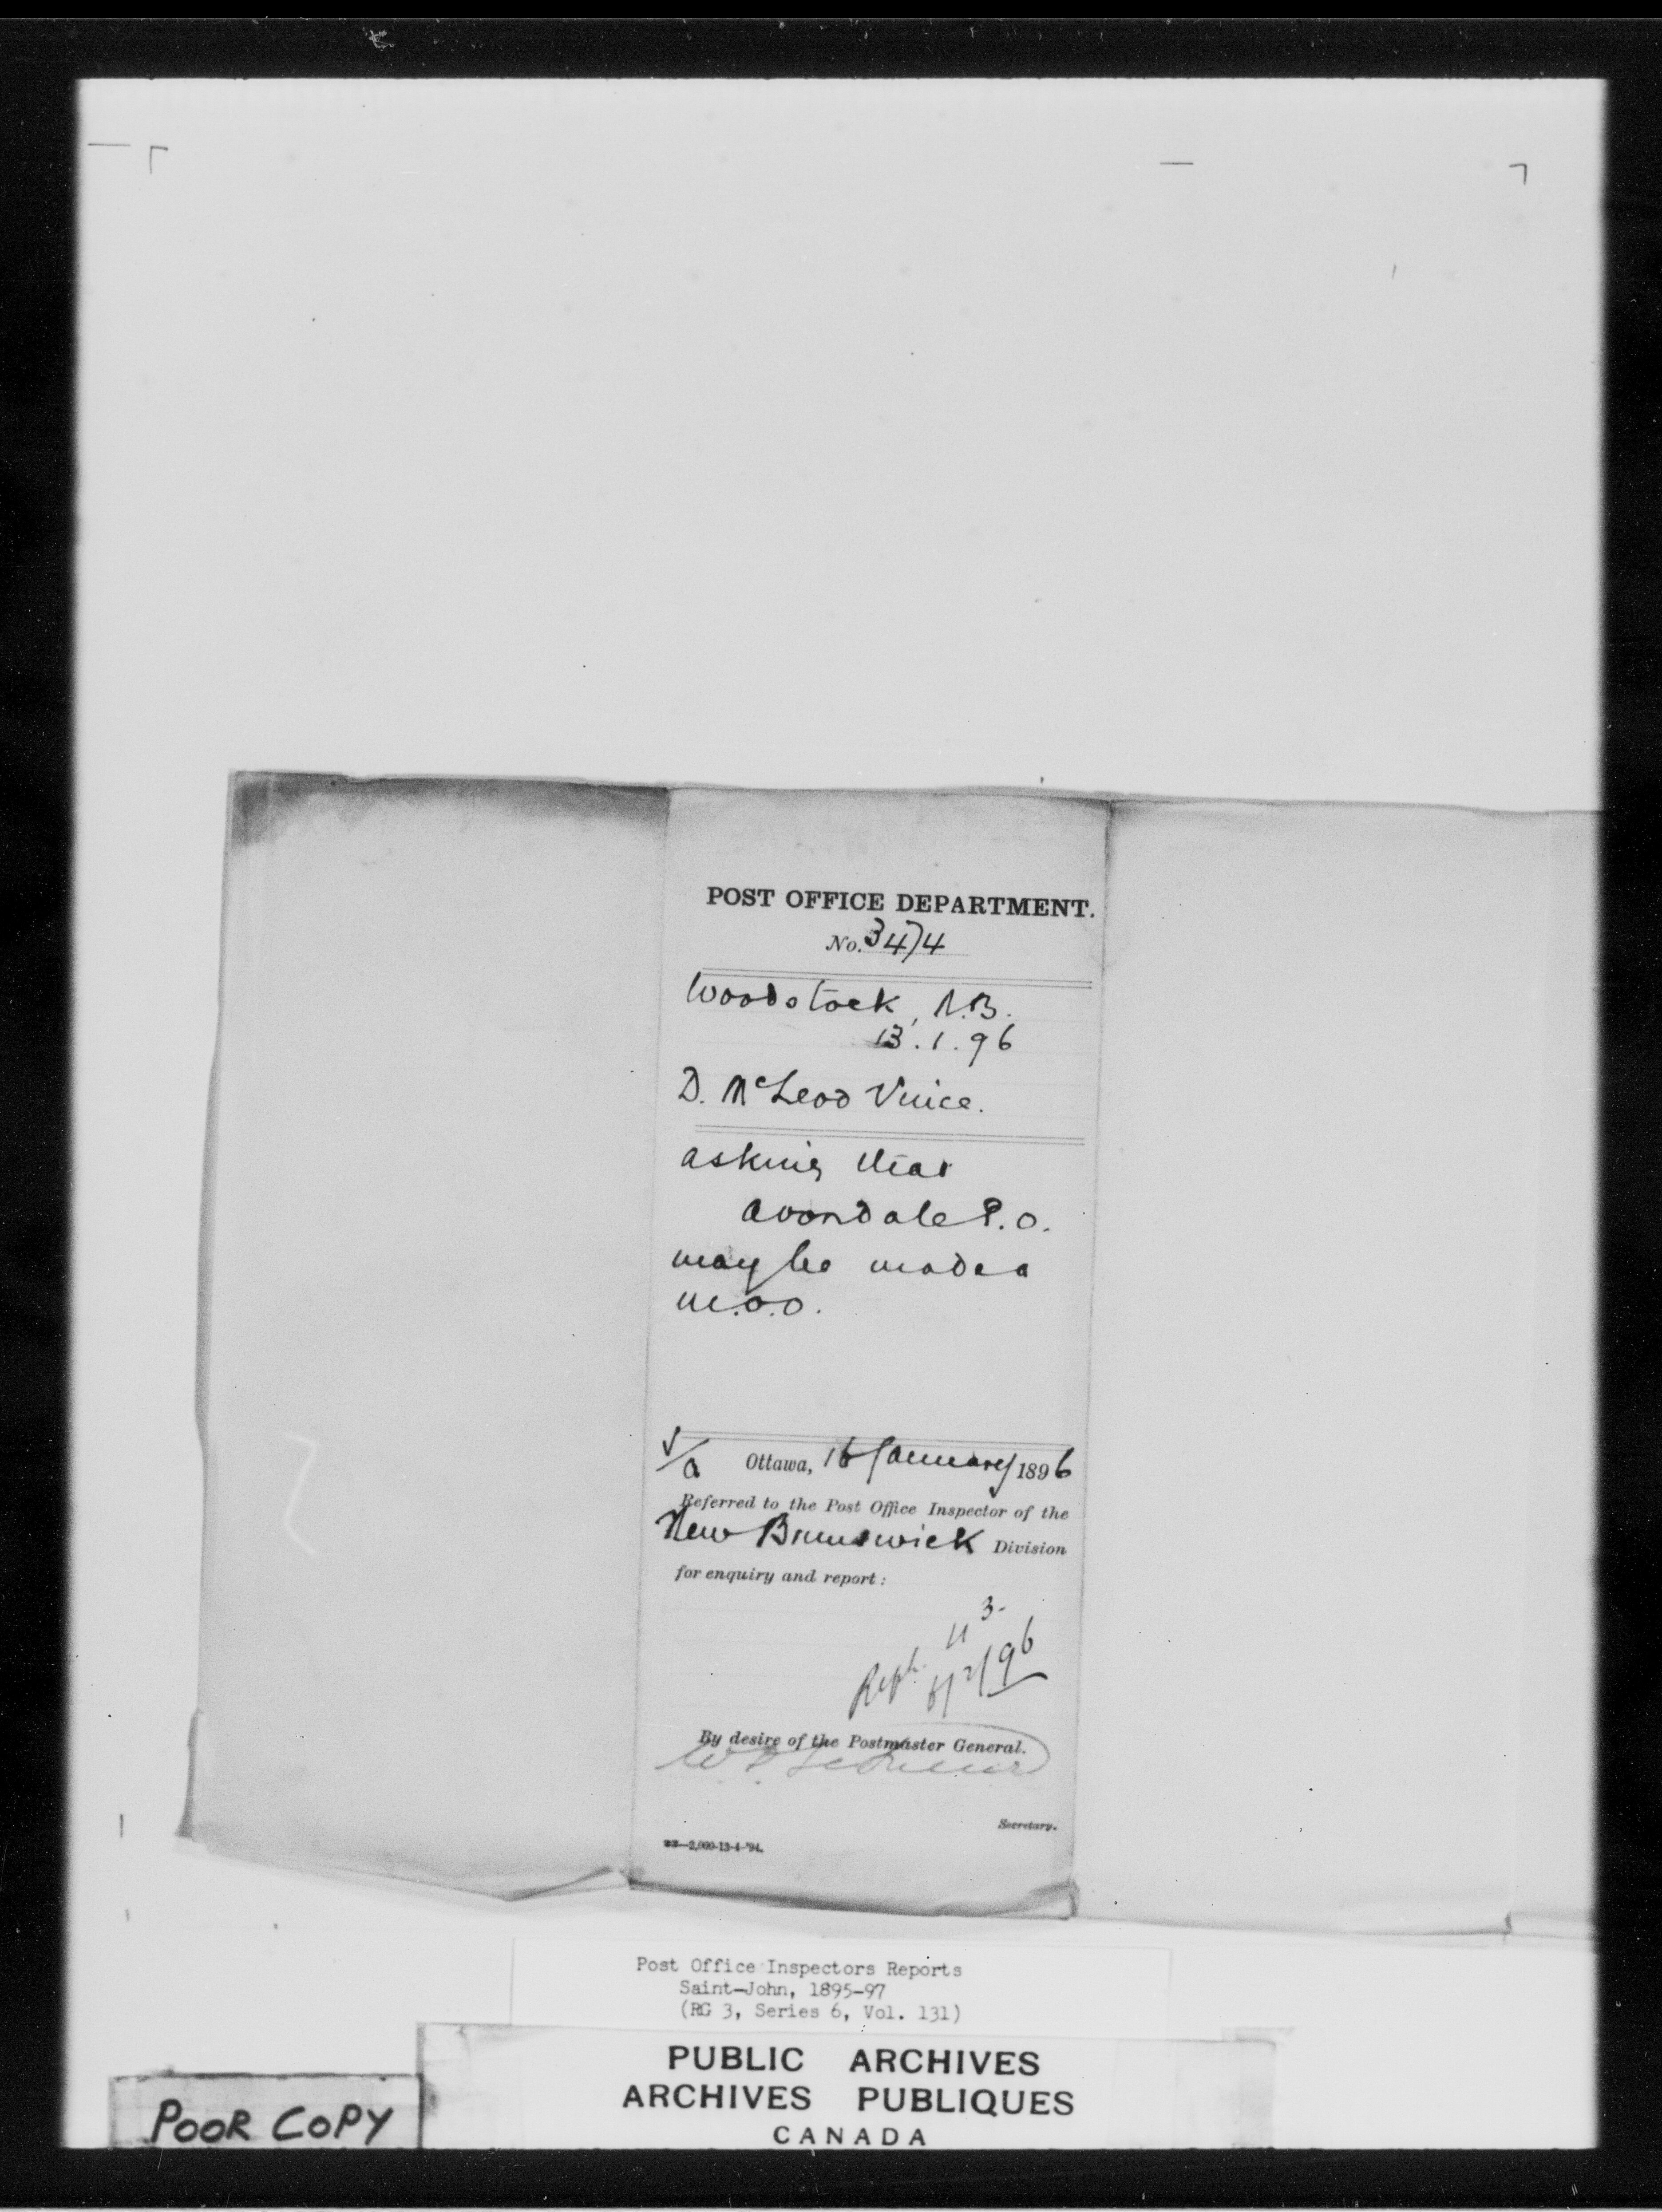 POST OFFICE DEPARTMENT.
No. 3474
Woodstock, N.B.
13.1.96
D. McLeod Vince.
asking that
Avondale P.O.
may be made a
M.O.O.
Ottawa, 16 January 1896
Referred to the Post Office Inspector of the
New Brunswick Division
for enquiry and report:
3-
11
Rept. /2/96
By desire of the Postmaster General.
Secretary.
2,000-13-4-'94.
Post Office Inspectors Reports
Saint-John, 1895-97
(RG 3, Series 6, Vol. 131)
PUBLIC ARCHIVES
ARCHIVES PUBLIQUES
CANADA
POOR COPY